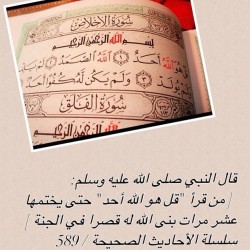 سورة الإخلاص
بسم الله الرحمن الرحيم
هو الله أحد ۝ الله الصمد ۝
يولد ۝ ولم يكن له كفوا أحد
سورة الفلق
بسم الله الرحمن الرحيم
قال النبي صلى الله عليه وسلم:
/من قرأ "قل هو الله أحد" حتى يختمها
عشر مرات بنى الله له قصرا في الجنة /
سلسلة الأحاديث الصحيحة / 589